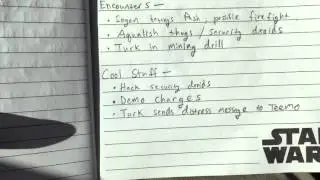 Encounters -
• Sogan brings fish, possible firefight
• Aqualish thugs / security droids
• Turk in mining drill
Cool Stuff -
• Hack security droids
• Demo charges
• Turk sends distress message to Teemo
STAR
WARS